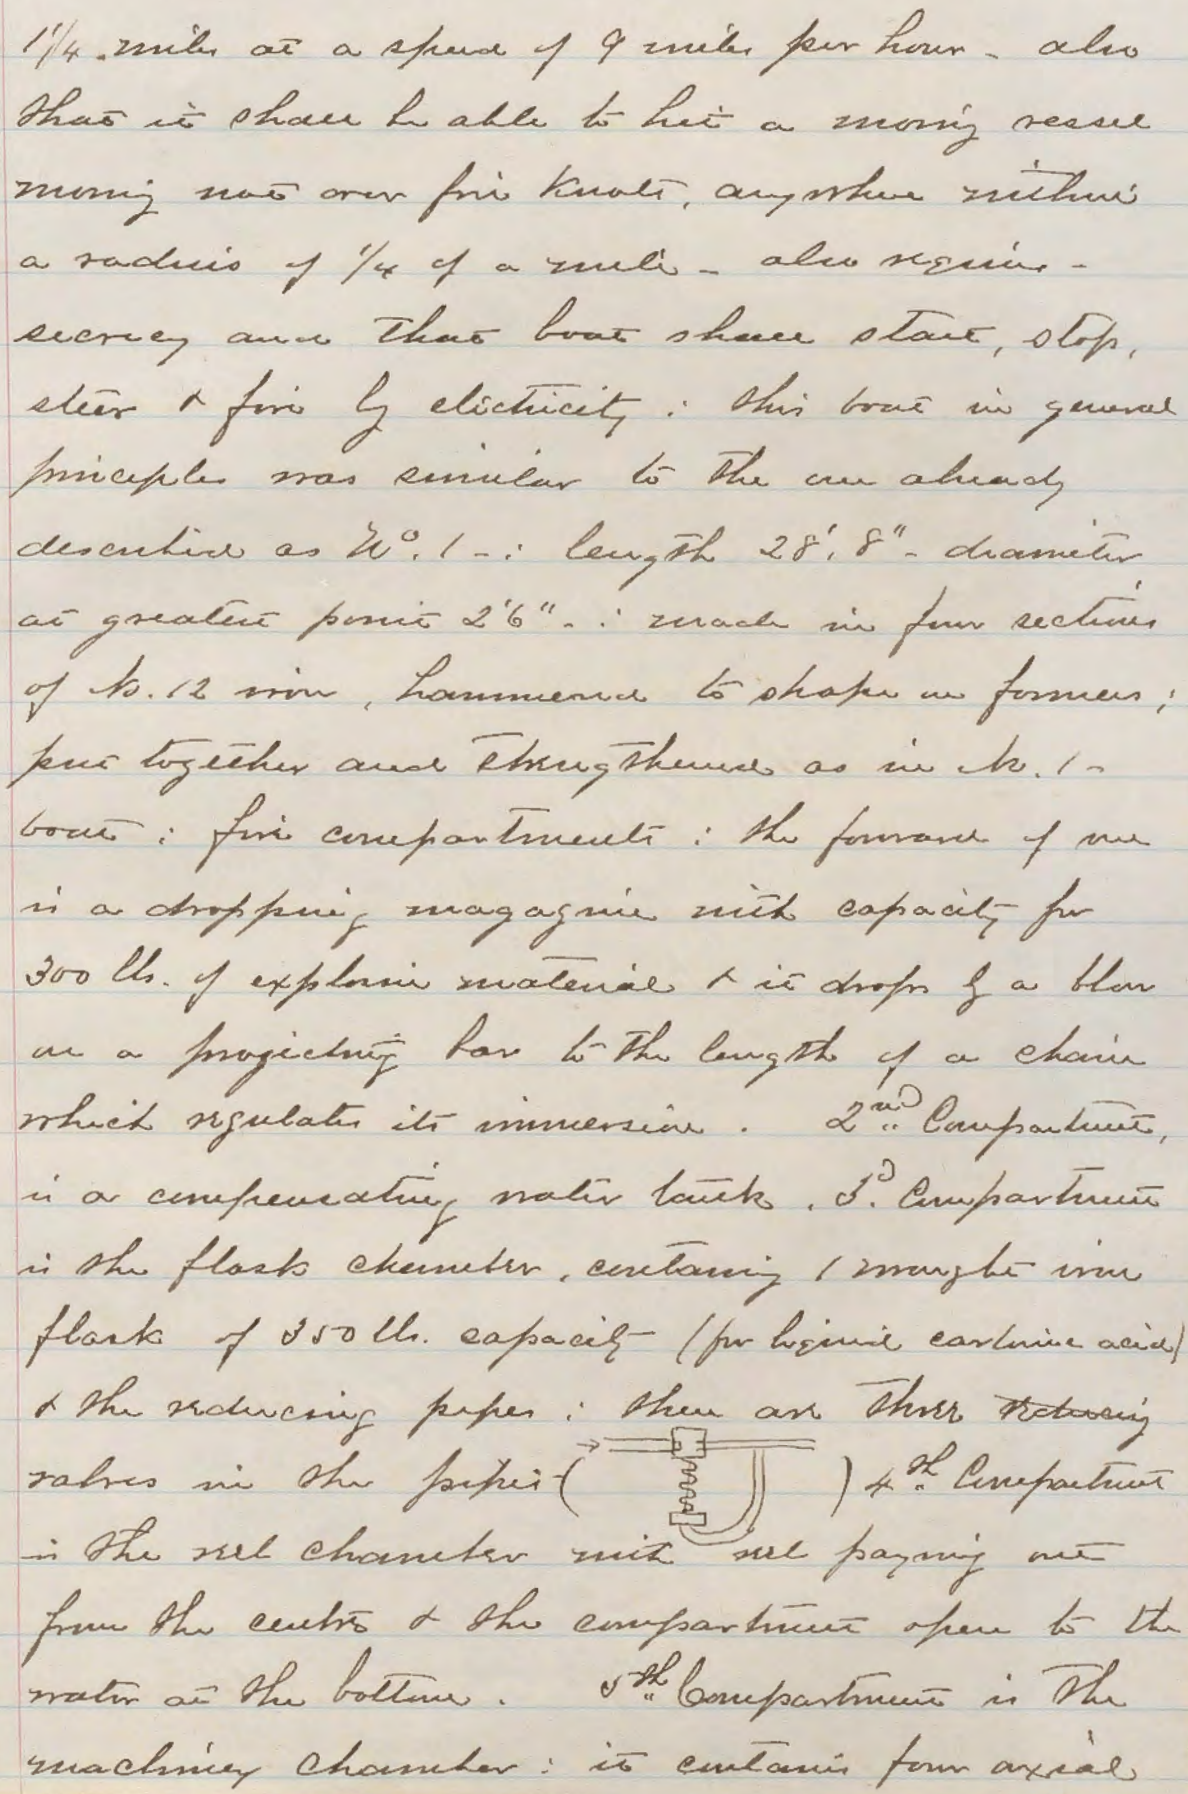 1 1/4 miles at a speed of 9 miles per hour - also
that it shall be able to hit a moving vessel
moving not over five knots, anywhere within
a radius of 1/4 of a mile - also requires -
secrecy and that boat shall start, stop,
steer & fire by electricity : this boat in general
principles was similar to the one already
described as No. 1 - : length 28'. 8" - diameter
at greatest point 2'6" - : made in four sections
of No. 12 iron, hammered to shape on formers ;
put together and strengthened as in No. 1 -
boat : five compartments : the forward of one
is a dropping magazine with capacity for
300 lbs. of explosive material & it drops by a blow
on a projecting bar to the length of a chain
which regulates its immersion. 2nd Compartment,
is a compensating water tank. 3d. Compartment
is the flask chamber, containing 1 wrought iron
flask of 350 lbs. capacity (for liquid carbonic acid)
& the reducing pipes : there are three reducing
valves in the pipes ( ) 4th Compartment
is the reel chamber with reel paying out
from the centre & the compartment open to the
water at the bottom. 5th Compartment is the
machinery chamber : it contains four axial